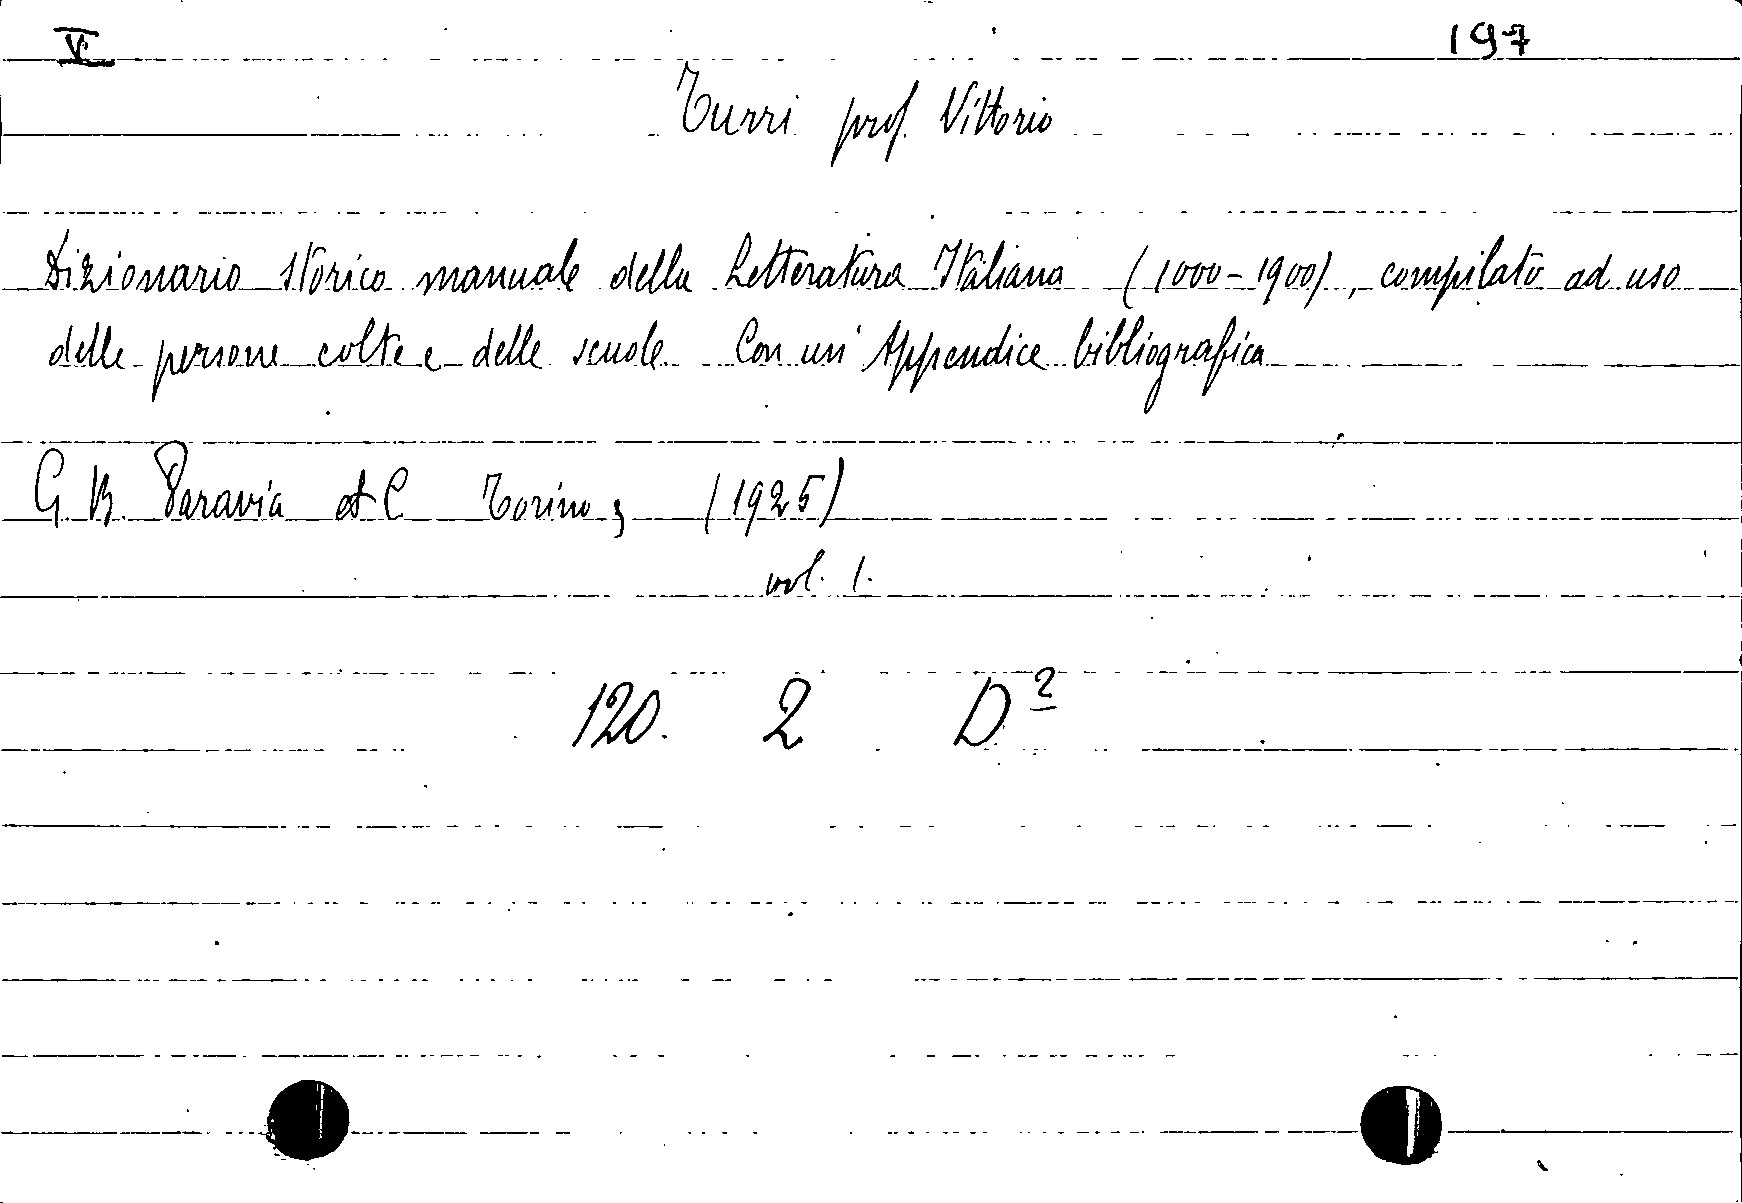 V 197
Turri prof. Vittorio
Dizionario storico manuale della Letteratura Italiana (1000-1900), compilato ad uso
delle persone colte e delle scuole Con un' Appendice bibliografica
G. B. Paravia et C Torino, (1925)
vol. 1.
120. 2 D²